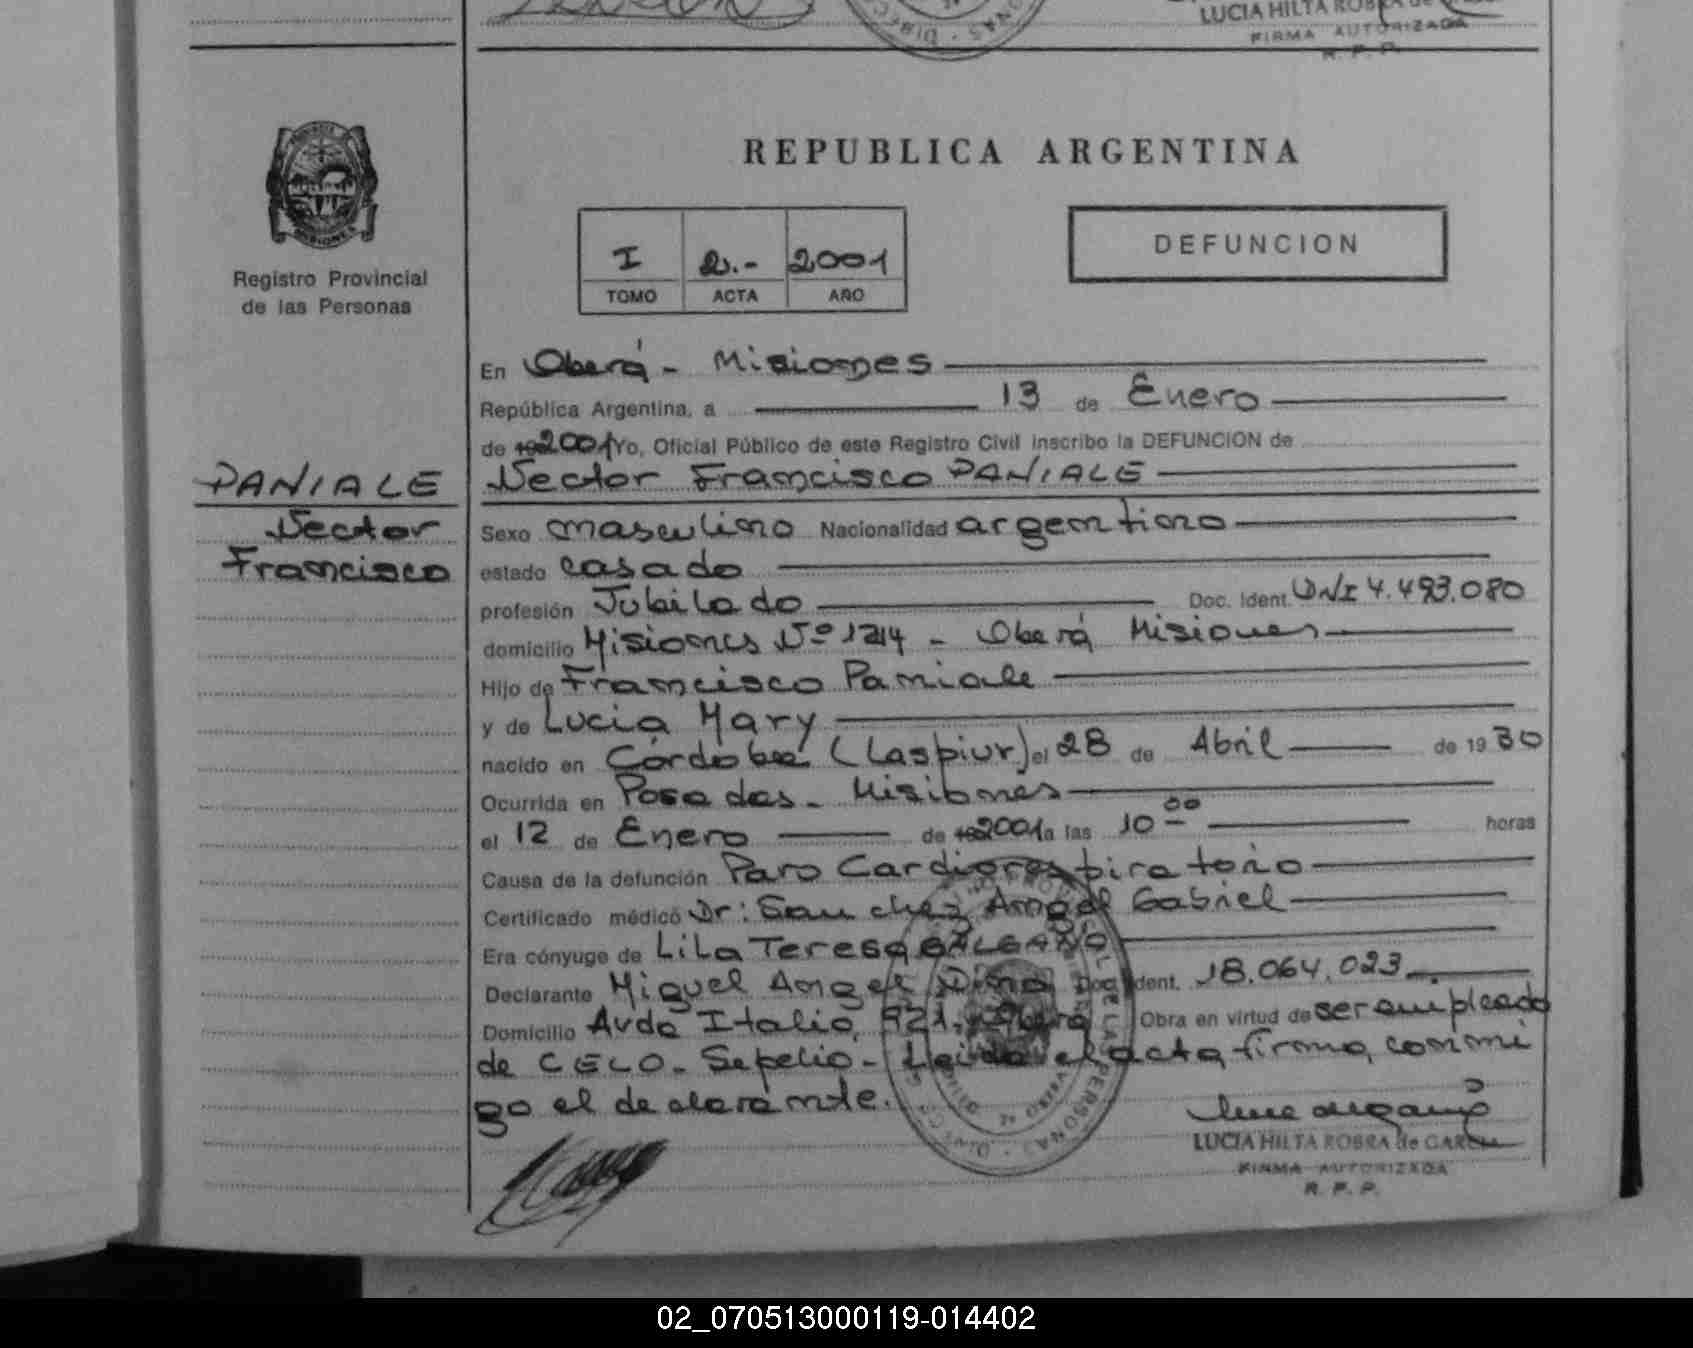 LUCIA HILTA ROBRA de
FIRMA AUTORIZADA
R. P. P.
REPUBLICA ARGENTINA
I 2.- 2001
TOMO ACTA AÑO
DEFUNCION
Registro Provincial
de las Personas
En Oberá - Misiones
República Argentina, a 13 de Enero
de 19 2001 Yo, Oficial Público de este Registro Civil inscribo la DEFUNCION de
PANIALE
Nector Francisco PANIALE
Nector
Francisco
Sexo masculino Nacionalidad argentino
estado casado
profesión Jubilado Doc. Ident. DNI 4.493.080
domicilio Misiones Nº 1214 - Oberá Misiones
Hijo de Francisco Paniale
y de Lucia Mary
nacido en Córdoba (Laspiur) el 28 de Abril de 1930
Ocurrida en Posadas - Misiones
el 12 de Enero de 19 2001 a las 10 00 horas
Causa de la defunción Paro Cardiorespiratorio
Certificado médico Dr: Sanchez Angel Gabriel
Era cónyuge de Lila Teresa GALGANO
Declarante Miguel Angel Doc. Ident. 18.064.023
Domicilio Avda Italia 921 - Oberá Obra en virtud de ser empleado
de CELO - Sepelio - Leida el acta, firma conmi
go el declarante.
LUCIA HILTA ROBRA de GARCIA
FIRMA AUTORIZADA
R. P. P.
02_070513000119-014402